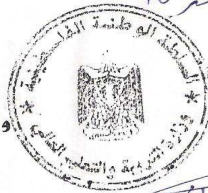 السلطة الوطنية الفلسطينية
وزارة التربية والتعليم العالي